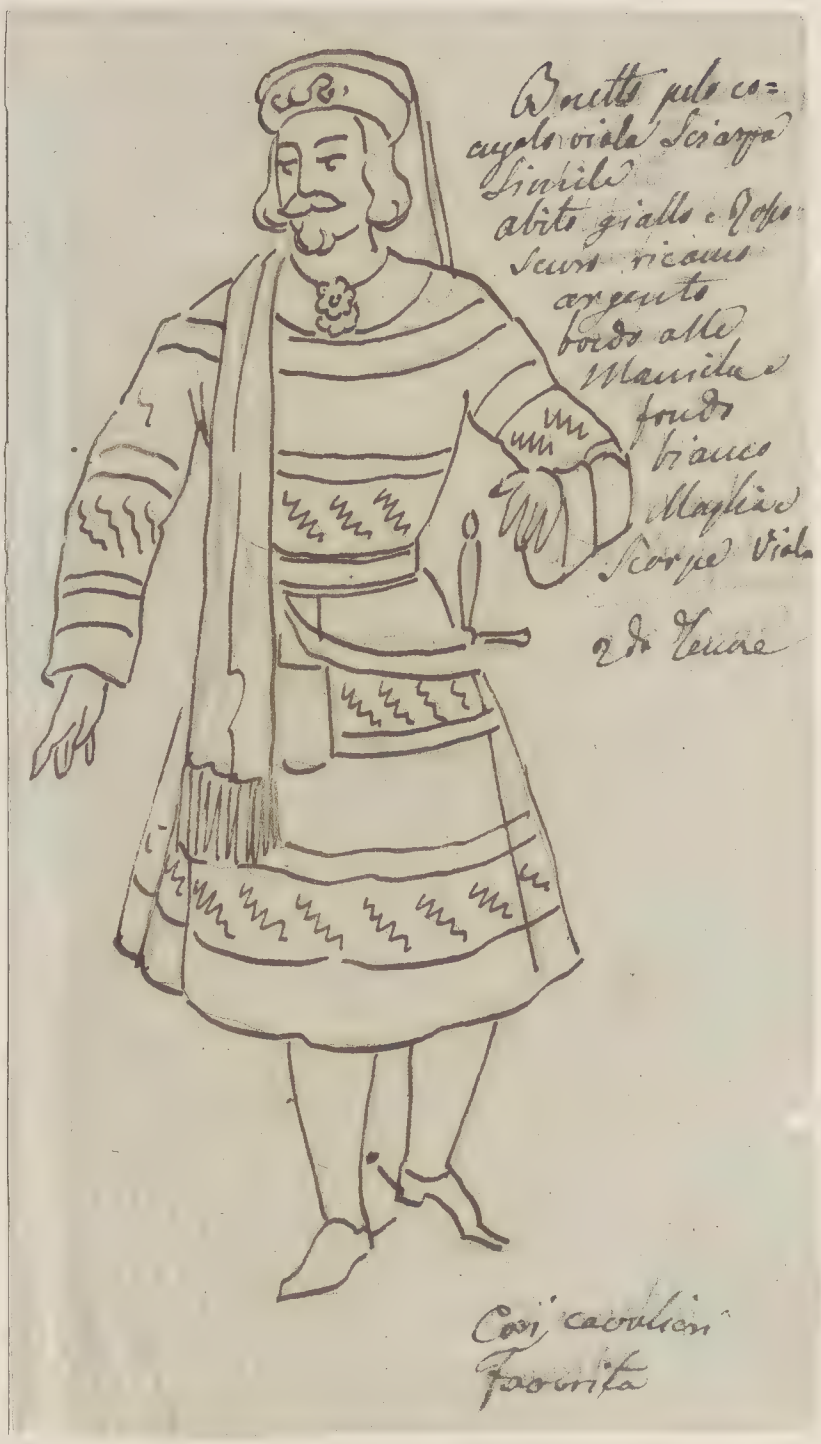 Boretto pelo co=
cupolo viola Sciarpa
Simile
abito giallo e Roso
scuro ricamo
argento
bordo alle
Maniche
fondo
bianco
Maglia e
Scarpe Viola
2do Tenore
Cori cavalieri
Favorita